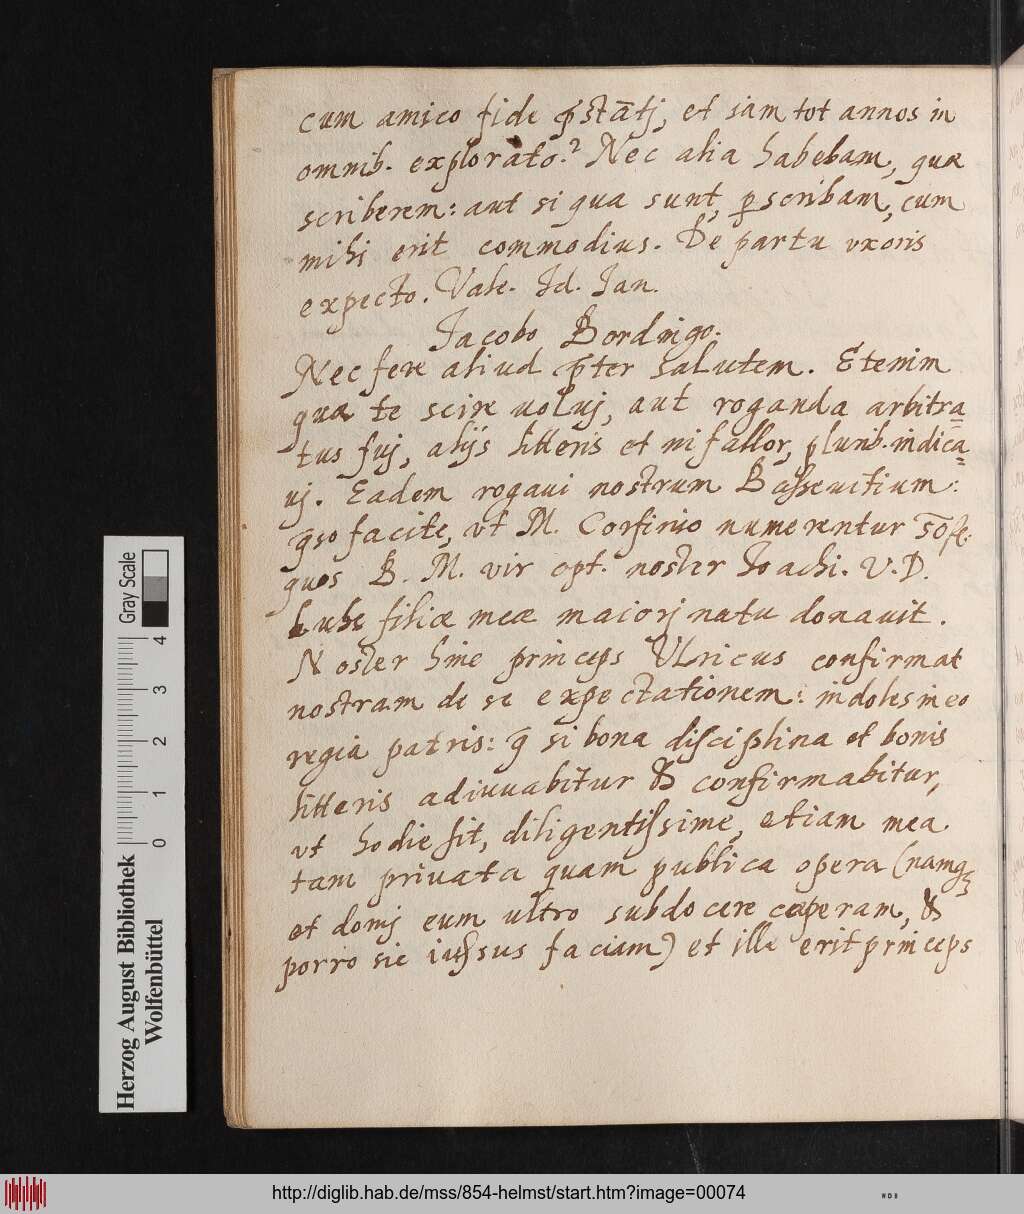 cum amico fide p̄stātj, et iam tot annos in
omnib. explorato? Nec alia habebam, quæ
scriberem: aut si qua sunt, ꝑscribam, cum
mihi erit commodius. De partu vxoris
expecto. Vale. Id. Ian.
Iacobo Bordingo.
Nec fere aliud p̄ter salutem. Etenim
quæ te scire uoluj, aut roganda arbitra=
tus fuj, alijs litteris et ni fallor, plurib. indica=
uj. Eadem rogaui nostrum Basseuitium:
q̄so facite, vt M. Corfinio numerentur
quos B. M. vir opt. noster Ioachi. V. D.
Luhe filiæ meæ maiorj natu donauit.
Noster hinc princeps VLricus confirmat
nostram de se expectationem: indoles in eo
regia patris: q̄ si bona disciplina et bonis
litteris adiuuabitur & confirmabitur,
vt hodie fit, diligentissime, etiam mea
tam priuata quam publica opera (namq;
et domj eum ultro subdocere cœperam, &
porro sic iussus faciam) et ille erit princeps
Herzog August Bibliothek
Wolfenbüttel
0 1 2 3 4
Gray Scale
http://diglib.hab.de/mss/854-helmst/start.htm?image=00074
WDB